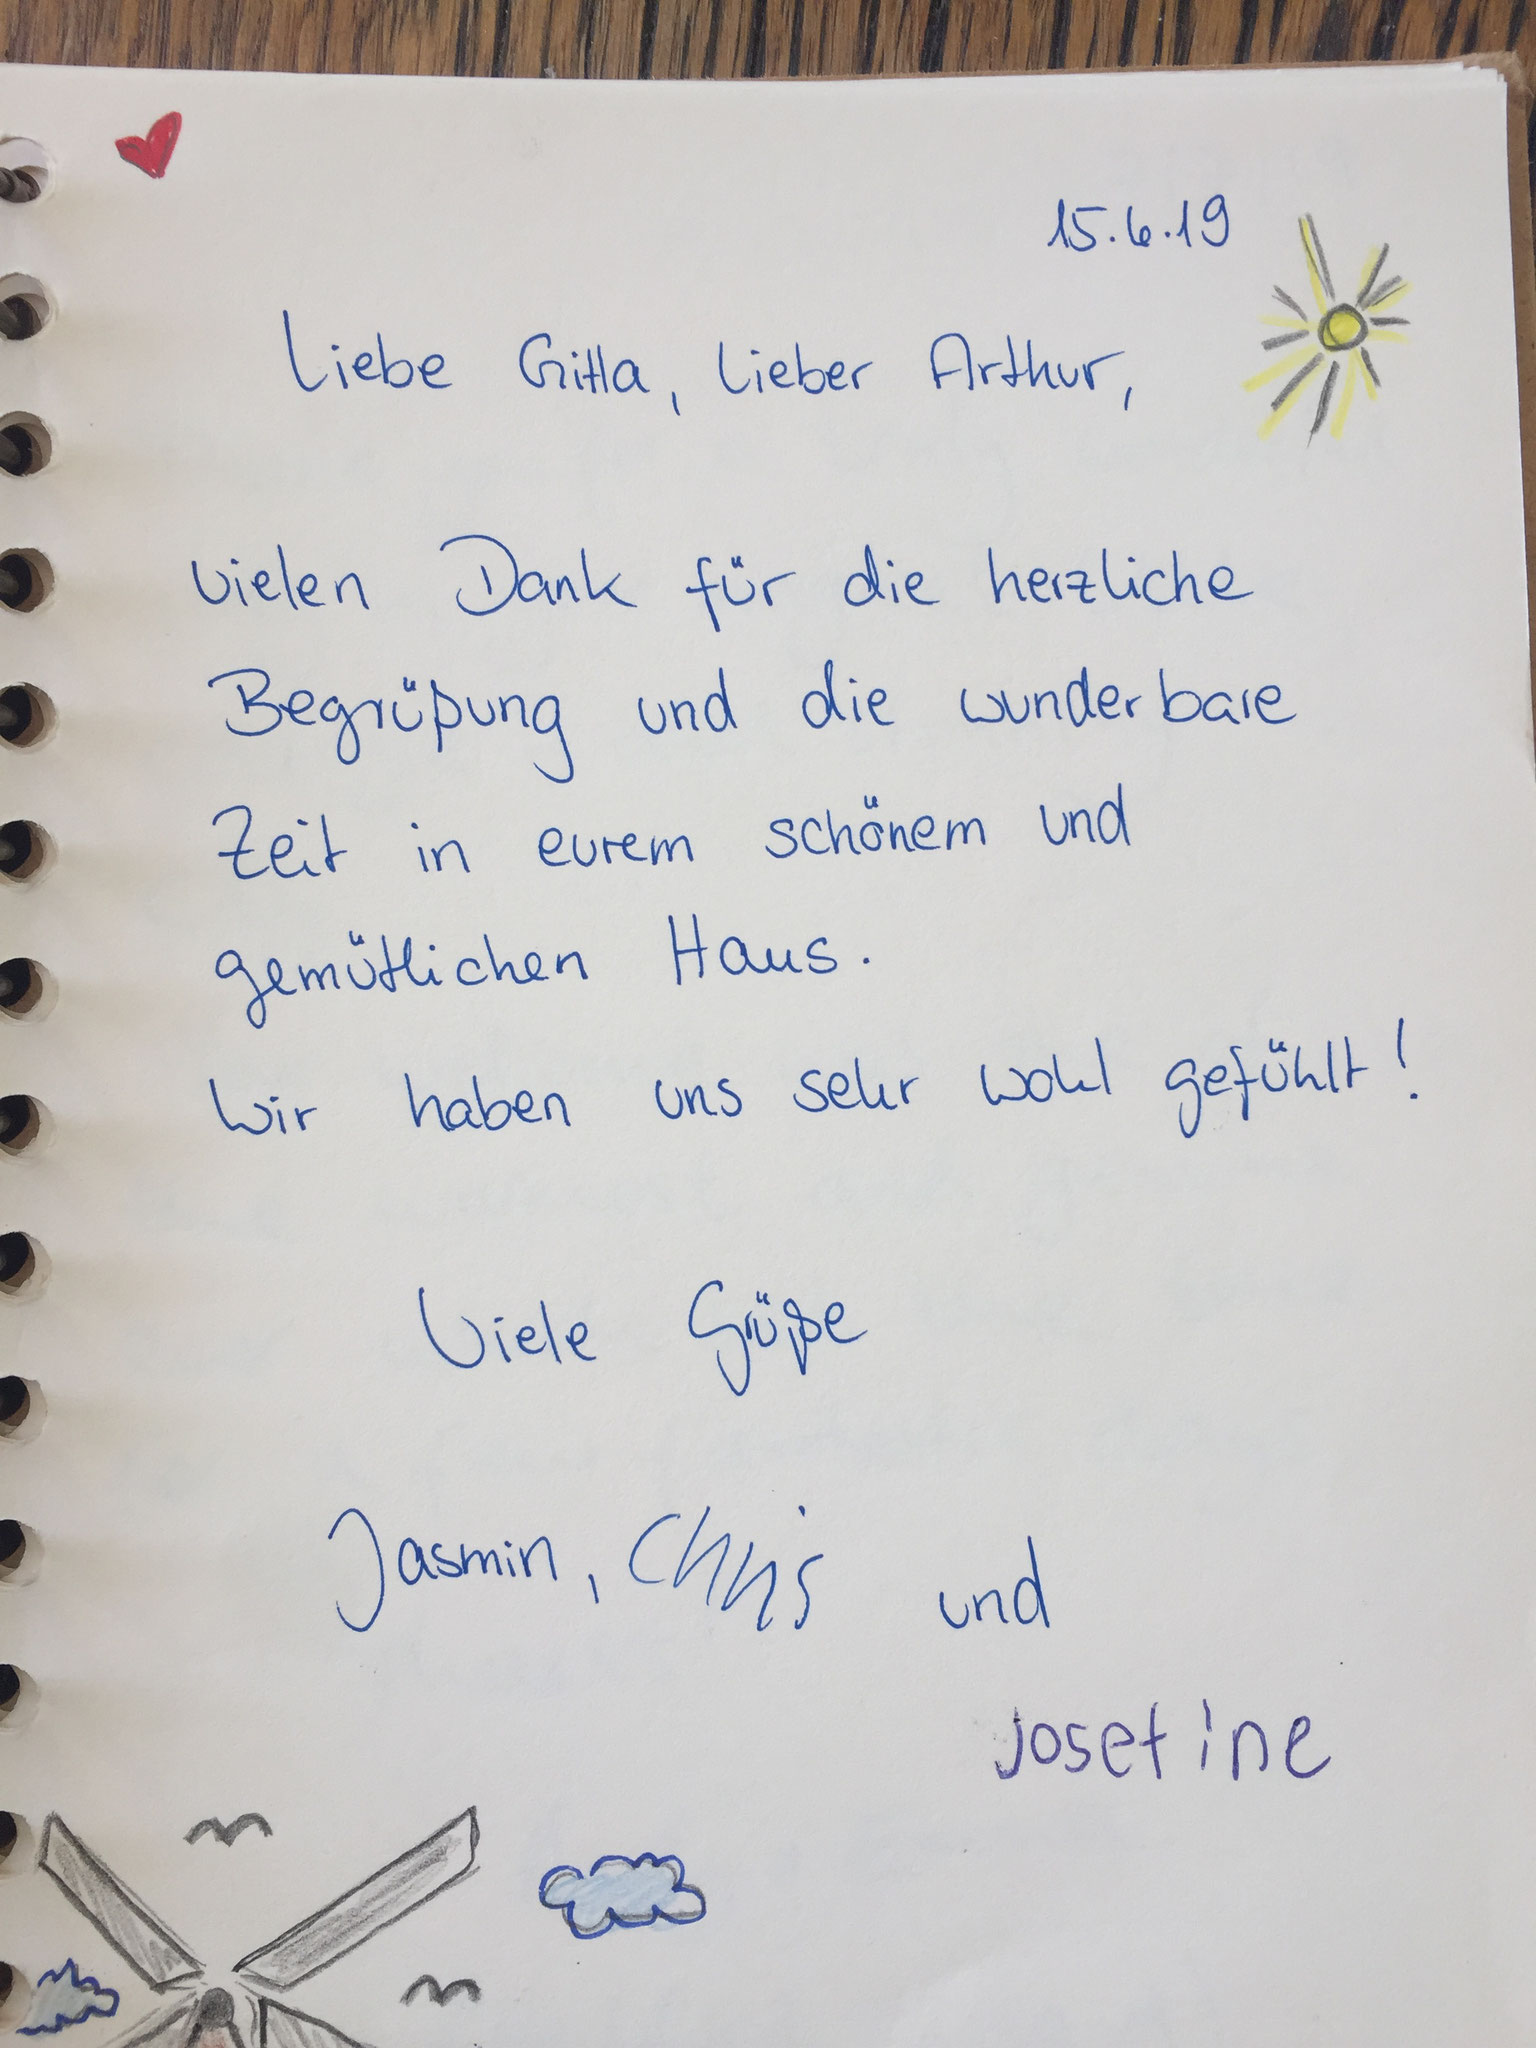 15.6.19
Liebe Gitta, lieber Arthur,
vielen Dank für die herzliche
Begrüßung und die wunderbare
Zeit in eurem schönem und
gemütlichen Haus.
Wir haben uns sehr wohl gefühlt!
Viele Grüße
Jasmin, Chris und
Josefine